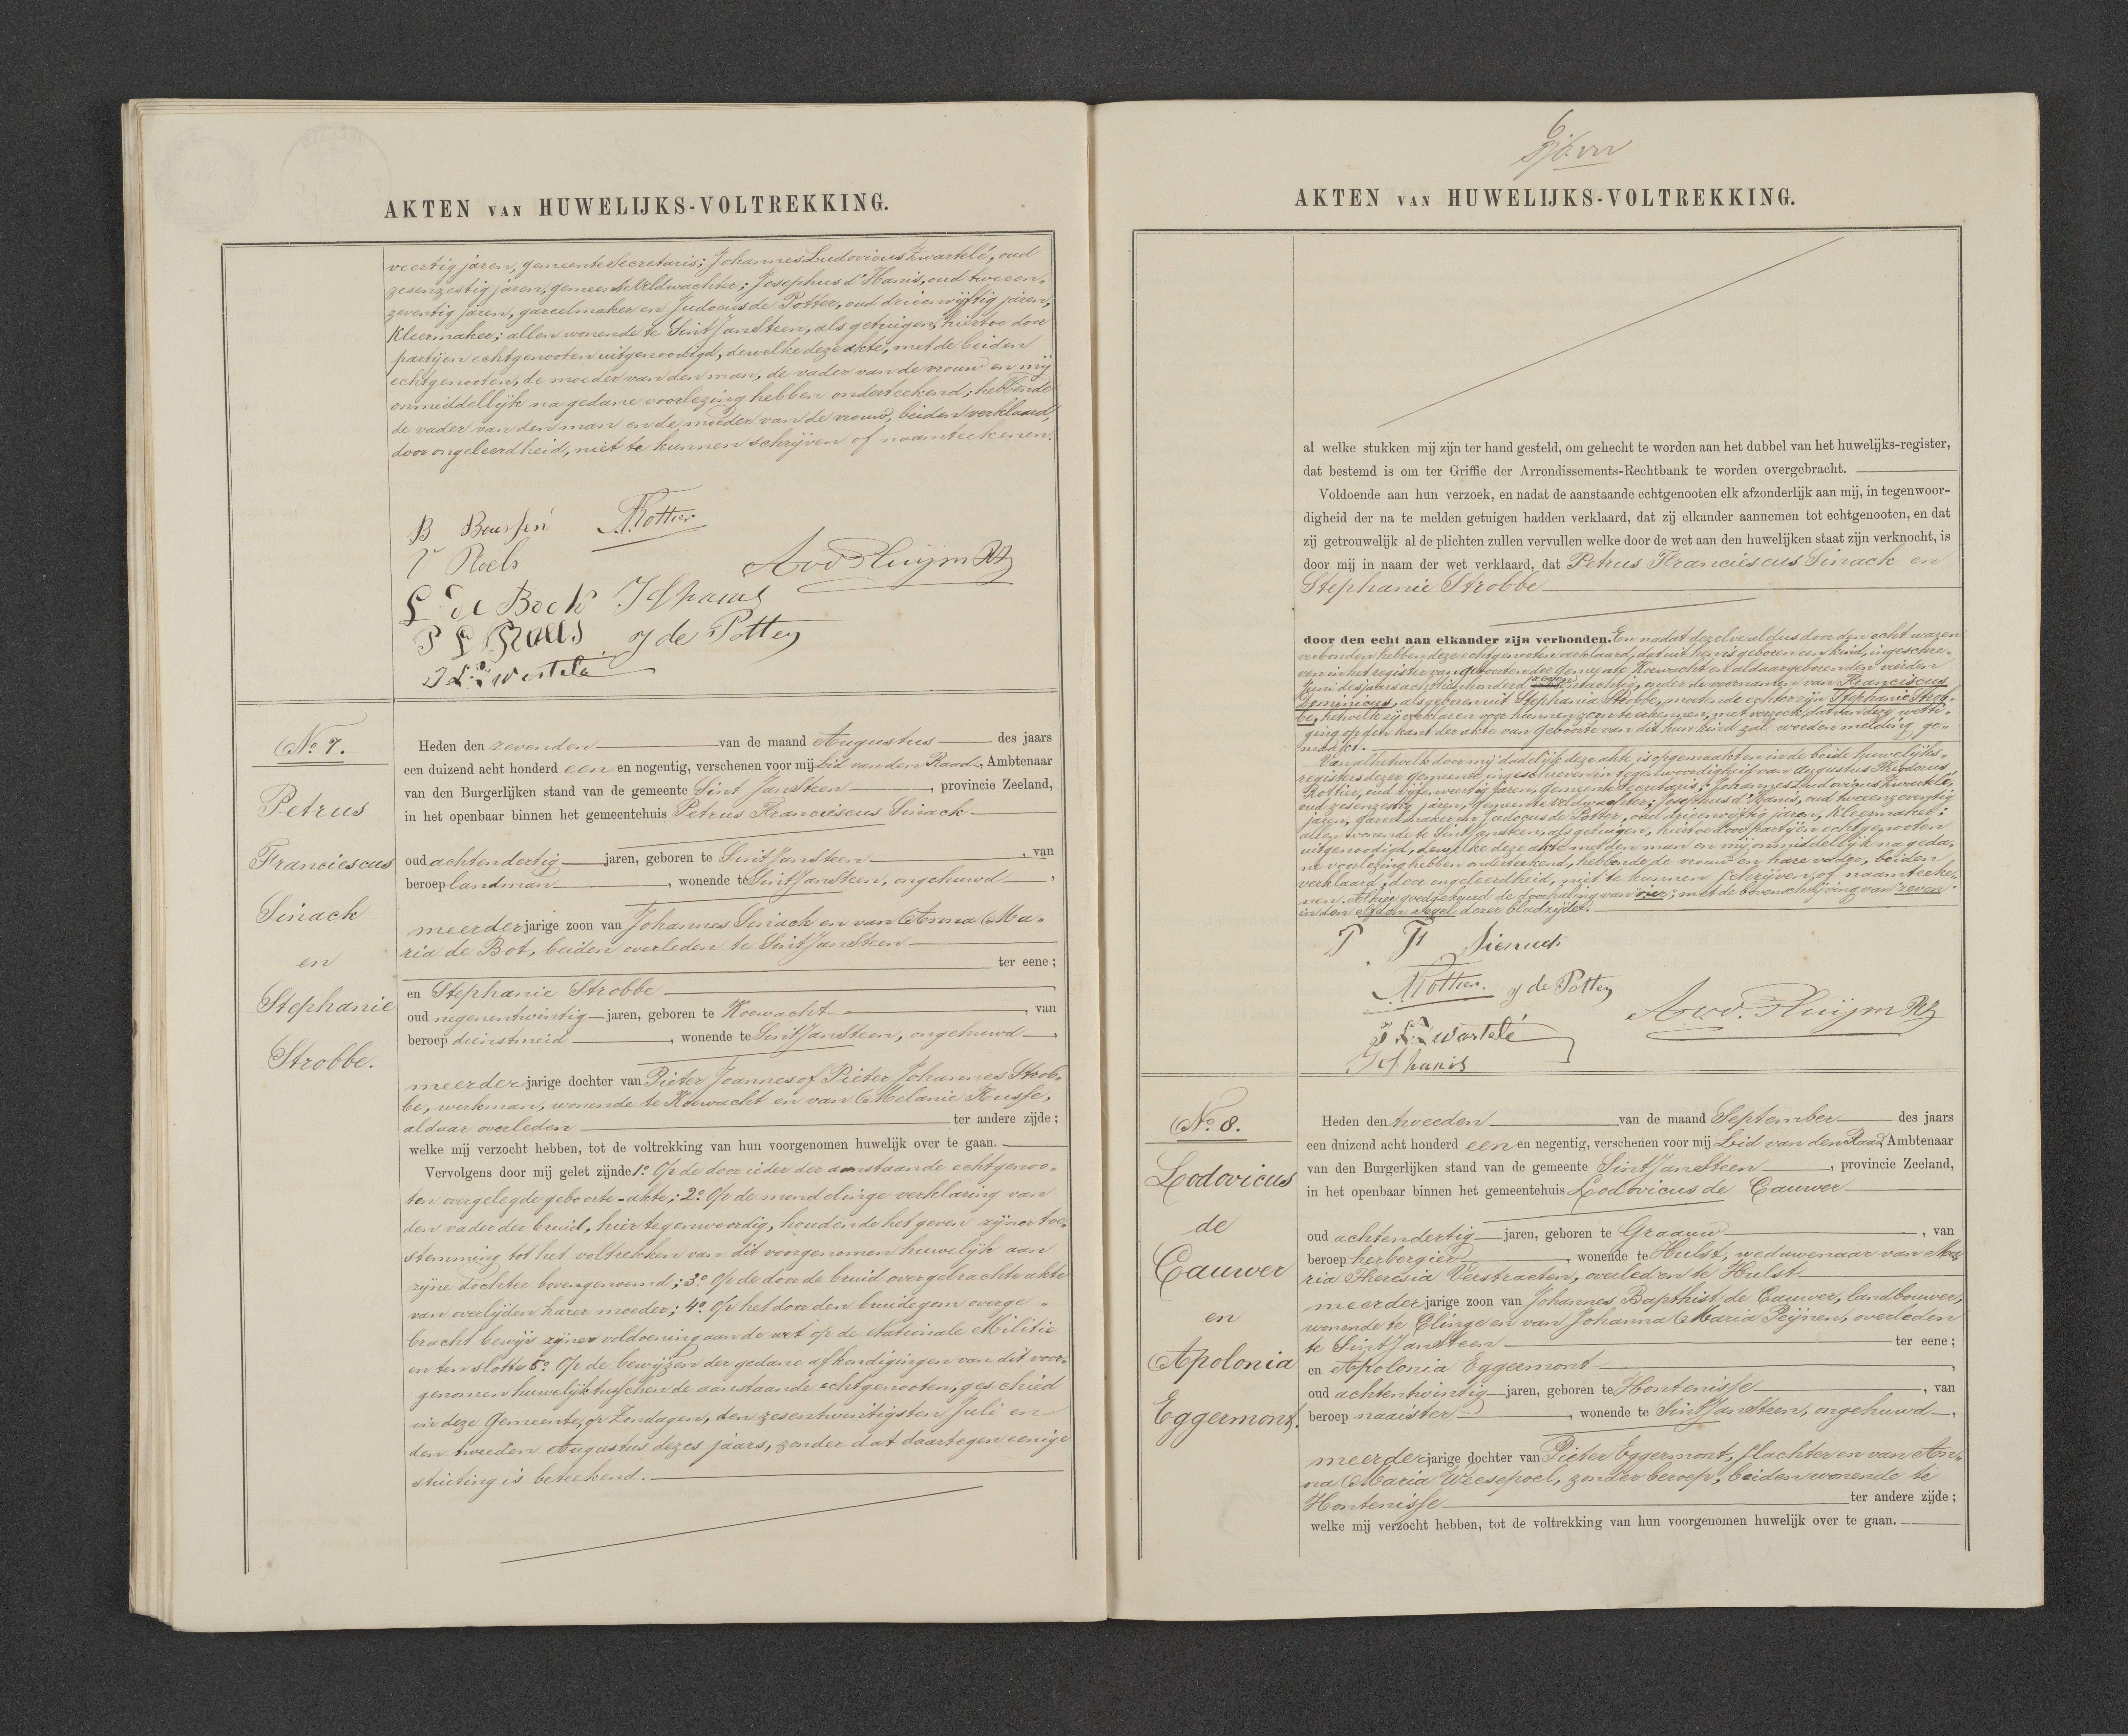 AKTEN VAN HUWELIJKS-VOLTREKKING.
veertig jaren, gemeente Secretaris; Johannes Ludovicus Zwartelé, oud
zesenzestig jaren, gemeente Veldwachter; Josephus d'Hanis, oud tweeen-
zeventig jaren, gareelmaker en Judocus de Potter, oud drieenvijftig jaren,
Kleermaker; allen wonende te Sint JanSteen, als getuigen, hiertoe door
partijen echtgenooten uitgenoodigd, dewelke deze akte, met de beiden
echtgenooten, de moeder van den man, de vader van de vrouw en mij
onmiddellijk na gedane voorlezing hebben onderteekend; hebbende
de vader van den man en de moeder van de vrouw, beiden verklaard,
door ongeleerdheid, niet te kunnen schrijven of naamteekenen.
B
Rottier
V Roels
L de Bock
J d'hanis
P L Roels
J de Potter
J L Zwartelé
No 7.
Petrus
Franciescus
Sinack
en
Stephanie
Strobbe.
Heden den zevenden van de maand Augustus des jaars
een duizend acht honderd een en negentig, verschenen voor mij Lid van den Raad, Ambtenaar
van den Burgerlijken stand van de gemeente Sint JanSteen, provincie Zeeland,
in het openbaar binnen het gemeentehuis Petrus Franciescus Sinack
oud achtendertig jaren, geboren te Sint JanSteen, van
beroep landman, wonende te Sint JanSteen, ongehuwd,
meerderjarige zoon van Johannes Sinack en van Anna Ma-
ria de Bot, beiden overleden te Sint JanSteen
ter eene;
en Stephanie Strobbe
oud negenentwintig jaren, geboren te Koewacht, van
beroep dienstmeid, wonende te Sint JanSteen, ongehuwd,
meerderjarige dochter van Pieter Joannes of Pieter Johannes Strob-
be, werkman, wonende te Koewacht en van Melanie Kusse,
aldaar overleden ter andere zijde;
welke mij verzocht hebben, tot de voltrekking van hun voorgenomen huwelijk over te gaan.
Vervolgens door mij gelet zijnde 1o Op de door ieder der aanstaande echtgenoo-
ten overgelegde geboorte-akte; 2o Op de mondelinge verklaring van
den vader der bruid, hier tegenwoordig, houdende het geven zijner toe-
stemming tot het voltrekken van dit voorgenomen huwelijk aan
zijne dochter bovengenoemd; 3o Op de door de bruid overgebrachte akte
van overlijden harer moeder; 4o Op het door den bruidegom overge-
bracht bewijs zijner voldoening aan de wet op de Nationale Militie
en ten slotte 5o Op de bewijzen der gedane afkondigingen van dit voor-
genomen huwelijk tusschen de aanstaande echtgenooten, geschied
in deze Gemeente, op Zondagen, den zesentwintigsten Juli en
den tweeden Augustus dezes jaars, zonder dat daartegen eenige
stuiting is beteekend.
6
AKTEN VAN HUWELIJKS-VOLTREKKING.
al welke stukken mij zijn ter hand gesteld, om gehecht te worden aan het dubbel van het huwelijks-register,
dat bestemd is om ter Griffie der Arrondissements-Rechtbank te worden overgebracht.
Voldoende aan hun verzoek, en nadat de aanstaande echtgenooten elk afzonderlijk aan mij, in tegenwoor-
digheid der na te melden getuigen hadden verklaard, dat zij elkander aannemen tot echtgenooten, en dat
zij getrouwelijk al de plichten zullen vervullen welke door de wet aan den huwelijken staat zijn verknocht, is
door mij in naam der wet verklaard, dat Petrus Franciescus Sinack en
Stephanie Strobbe
door den echt aan elkander zijn verbonden. En nadat dezelve aldus door den echt waren
verbonden hebben deze echtgenooten verklaard, dat uit hen is geboren een kind, ingeschre-
ven in het register van geboorten der Gemeente Koewacht en aldaar geboren den vierden
Juni des jaars achttienhonderd zeven entachtig, onder de voornamen van Franciscus
Dominicus, als geboren uit Stephania Strobbe, moetende echter zijn Stephanie Strob-
be, hetwelk zij verklaren voor hunnen zoon te erkennen, met verzoek, dat van deze wetti-
ging op den kant der akte van geboorte van dit hun kind zal worden melding ge-
maakt.
Van al hetwelk door mij dadelijk deze akte is opgemaakt en in de beide huwelijks-
registers dezer gemeente ingeschreven in tegenwoordigheid van Augustus Theodorus
Rottier, oud vijfenveertig jaren, gemeente Secretaris; Johannes Ludovicus Zwartelé,
oud zesenzestig jaren, gemeente Veldwachter; Josephus d'Hanis, oud tweeenzeventig
jaren, gareelmaker en Judocus de Potter, oud drieenvijftig jaren, Kleermaker;
allen wonende te Sint JanSteen, als getuigen, hiertoe door partijen echtgenooten
uitgenoodigd, dewelke deze akte met den man en mij onmiddellijk na geda-
ne voorlezing hebben onderteekend, hebbende de vrouw en hare vader, beiden
verklaard, door ongeleerdheid, niet te kunnen schrijven, of naamteeke-
nen. Alhier goedgekeurd de doorhaling van vier; met de bovenschrijving van zeven
in den elfden regel dezer bladzijde.
P. F. Sienack
Rottier. J de Potter
J L Zwartelé
J d'hanis
No 8.
Lodovicus
de
Cauwer
en
Apolonia
Eggermont.
Heden den tweeden van de maand September des jaars
een duizend acht honderd een en negentig, verschenen voor mij Lid van den Raad, Ambtenaar
van den Burgerlijken stand van de gemeente Sint JanSteen, provincie Zeeland,
in het openbaar binnen het gemeentehuis Lodovicus de Cauwer
oud achtendertig jaren, geboren te Graauw, van
beroep herbergier, wonende te Hulst, weduwenaar van Ma-
ria Theresia Verstraeten, overleden te Hulst
meerderjarige zoon van Johannes Bapthist de Cauwer, landbouwer,
wonende te Clinge en van Johanna Maria Peijnen, overleden
te Sint JanSteen ter eene;
en Apolonia Eggermont
oud achtentwintig jaren, geboren te Hontenisse, van
beroep naaister, wonende te Sint JanSteen, ongehuwd,
meerderjarige dochter van Pieter Eggermont, slachter en van An-
na Maria Weesepoel, zonder beroep, beiden wonende te
Hontenisse ter andere zijde;
welke mij verzocht hebben, tot de voltrekking van hun voorgenomen huwelijk over te gaan.